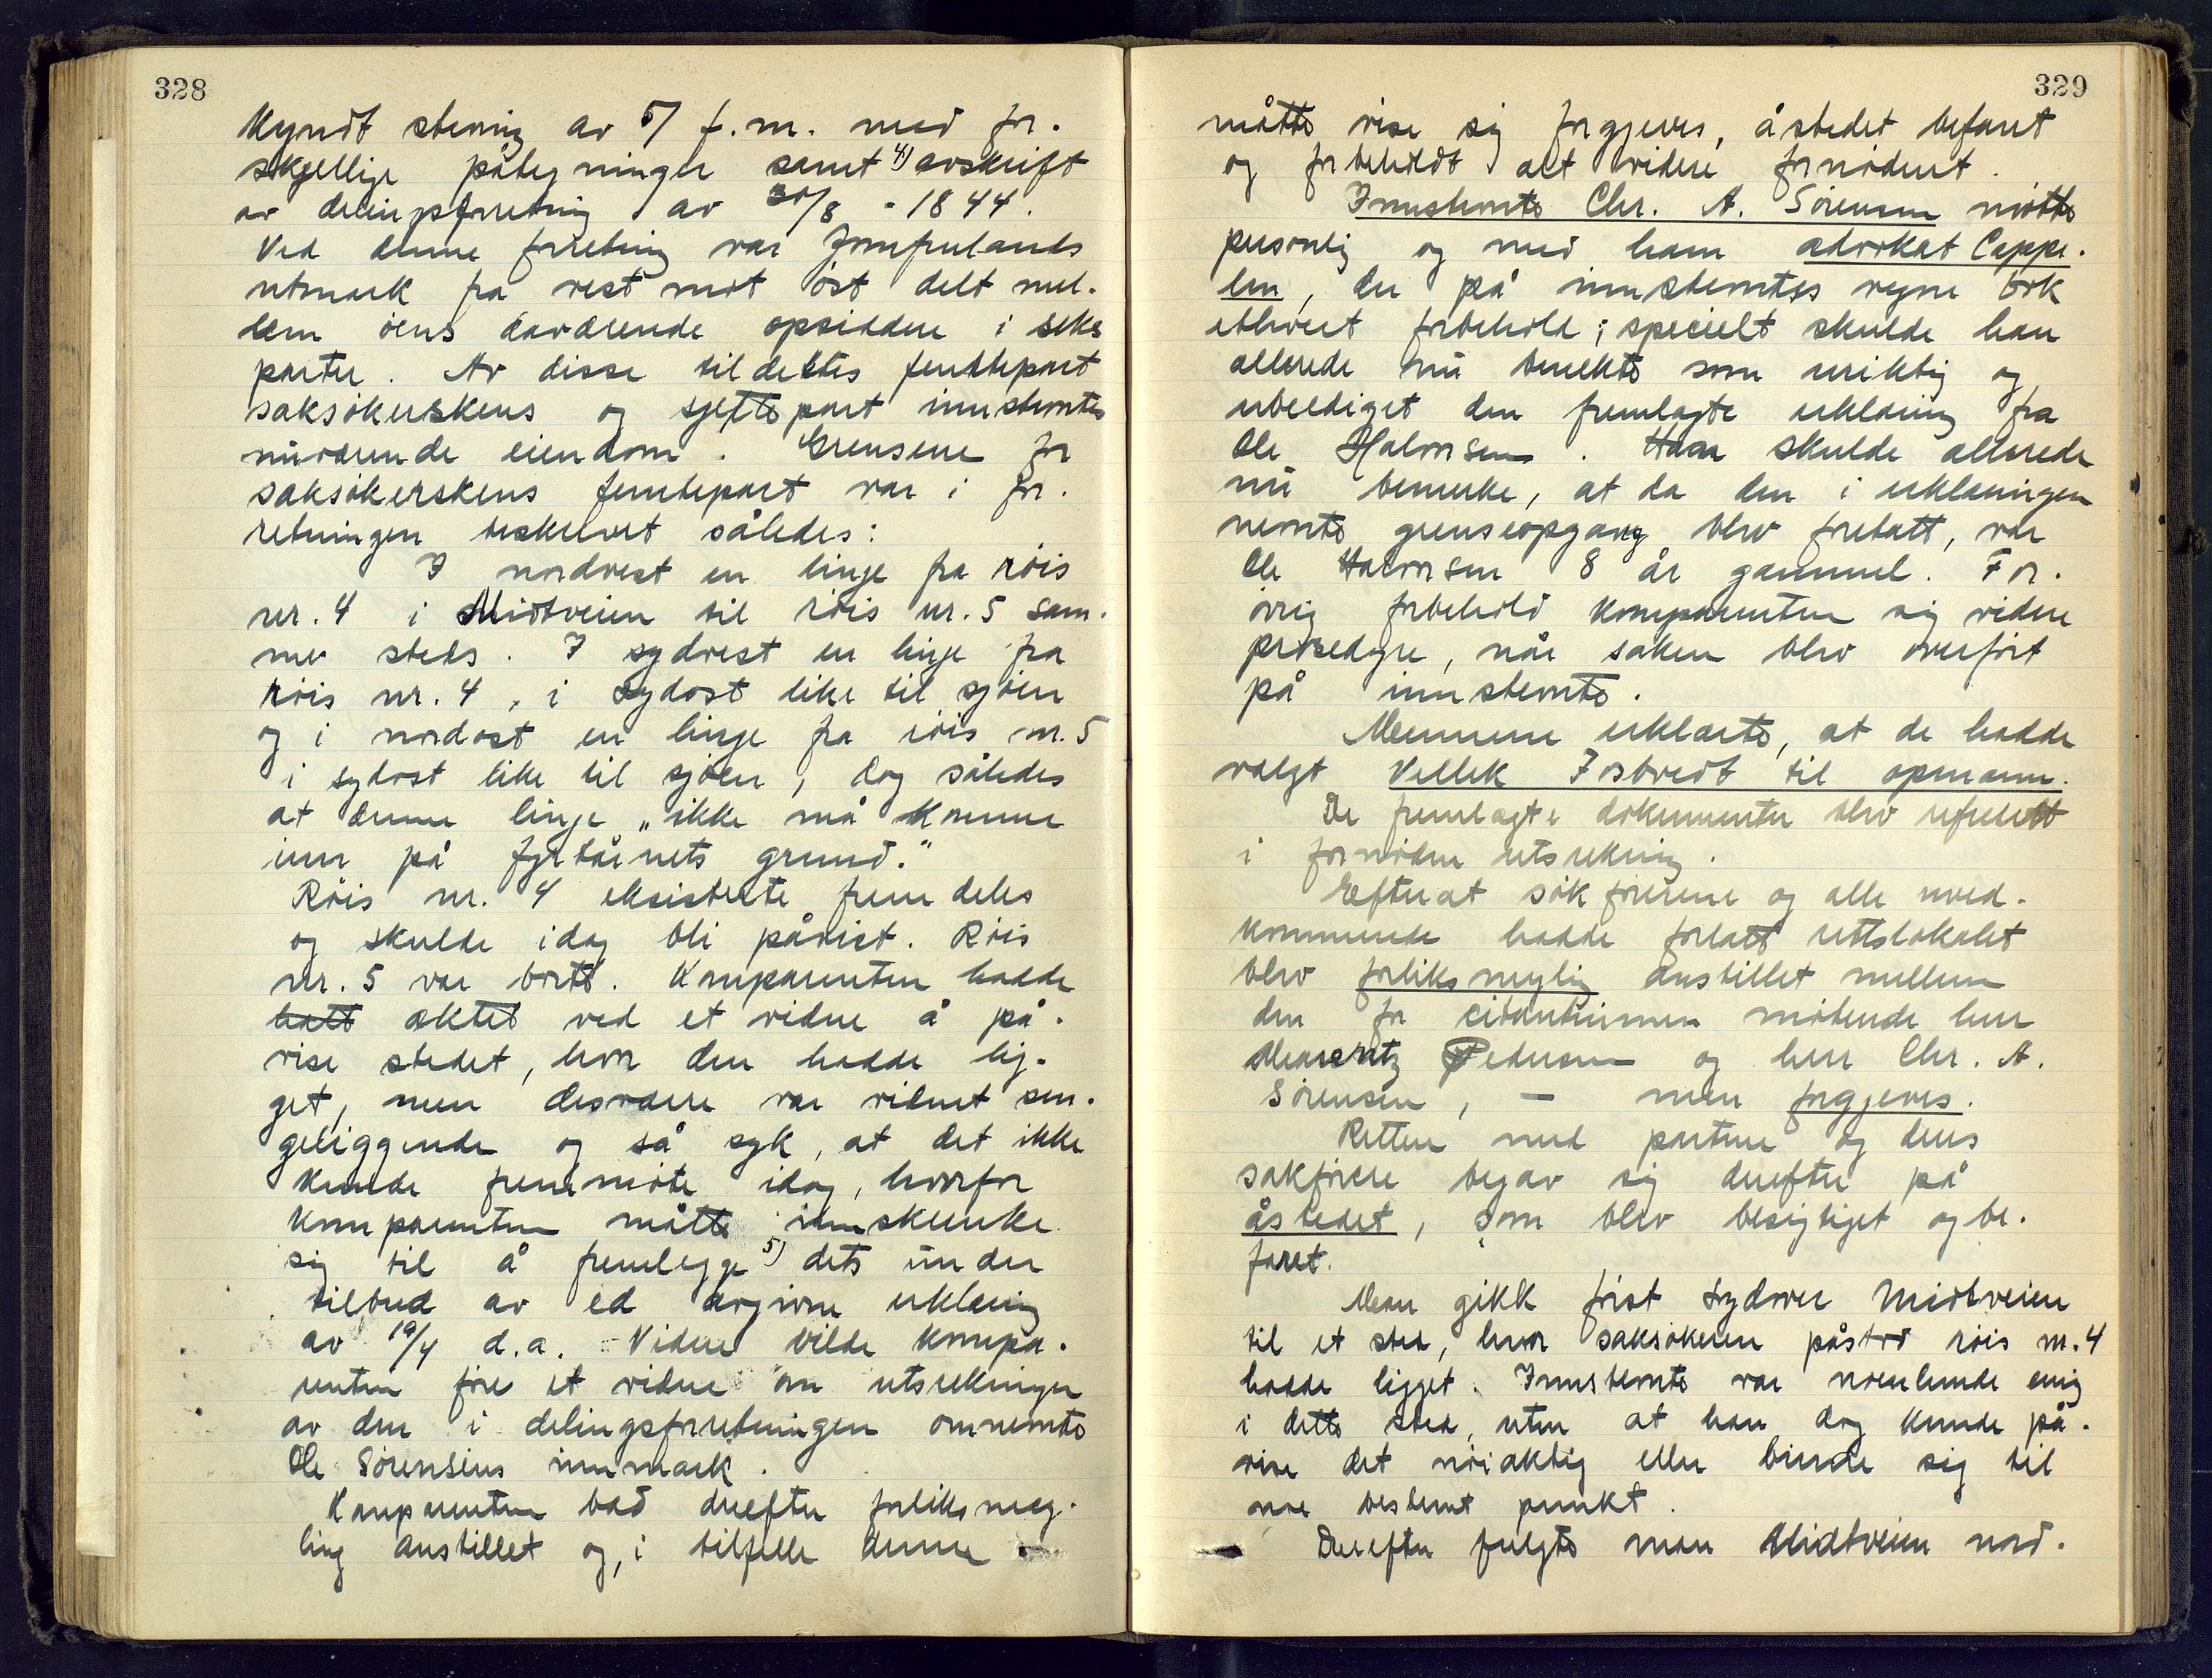 328
kyndt stevning av 5/ f.m. med for-
skjellige påtegninger samt 4) avskrift
av delingsforretning av 30/8 - 1844.
Ved denne forretning var Jomfrulands
utmark fra vest mot øst delt mel-
lem øens daværende opsiddere i seks
parter. Av disse tildeltes femtepart
saksøkerskens og sjettepart innstevntes
nuværende eiendom. Grensene for
saksøkerskens femtepart var i for-
retningen beskrevet således:
I nordvest en linje fra røis
nr. 4 i Midtveien til røis nr. 5 sam-
me steds. I sydvest en linje fra
røis nr. 4, i sydost like til sjøen
og i nordost en linje fra røis nr. 5
i sydost like til sjøen, dog således
at denne linje „ikke må komme
inn på fyrtårnets grund."
Røis nr. 4 eksisterte fremdeles
og skulde idag bli påvist. Røis
nr. 5 var borte. Komparenten hadde
hatt aktet ved et vidne å på-
vise stedet, hvor den hadde lig-
get, men desværre var vidnet sen-
geliggende og så syk, at det ikke
kunde fremmøte idag, hvorfor
komparenten måtte innskrenke
sig til å fremlegge 5) dets under
tilbud av ed avgivne erklæring
av 19/4 d.a. Videre vilde kompa-
renten føre et vidne om utstrekningen
av den i delingsforretningen omnevnte
Ole Sørensens innmark.
Komparenten bad derefter forliksmeg-
ling anstillet og, i tilfelle denne
329
måtte vise sig forgjeves, åstedet befaret
og forbeholdt alt videre fornødent.
Innstevnte Chr. A. Sørensen møtte
personlig og med ham advokat Cappe-
len, der på innstevntes vegne tok
ethvert forbehold; specielt skulde han
allerede nu benekte som uriktig og
ubeediget den fremlagte erklæring fra
Ole Halvorsen. Han skulde allerede
nu bemerke, at da den i erklæringen
nevnte grenseopgang blev foretatt, var
Ole Halvorsen 8 år gammel. For-
øvrig forbeholdt komparenten sig videre
prosedyre, når saken blev overført
på innstevnte.
Mennene erklærte, at de hadde
valgt Vellek Fostvedt til opmann.
De fremlagte dokumenter blev referert
i fornøden utstrekning.
Efterat sakførerne og alle uved-
kommende hadde forlatt rettslokalet
blev forliksmegling anstillet mellem
den for citantinnen møtende herr
Mauritz Pedersen og herr Chr. A.
Sørensen, – men forgjeves.
Retten med partene og deres
sakførere begav sig derefter på
åstedet, som blev besigtiget og be-
faret.
Man gikk først sydover Midtveien
til et sted, hvor saksøkeren påstod røis nr. 4
hadde ligget. Innstevnte var noenlunde enig
i dette sted, uten at han dog kunde på-
vise det nøiaktig eller binde sig til
noe bestemt punkt.
Derefter fulgte man Midtveien nord-